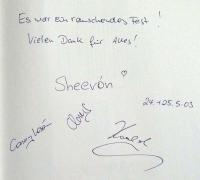 Es war ein rauschendes Fest !
Vielen Dank für Alles!
Sheevón
24.+25.5.03